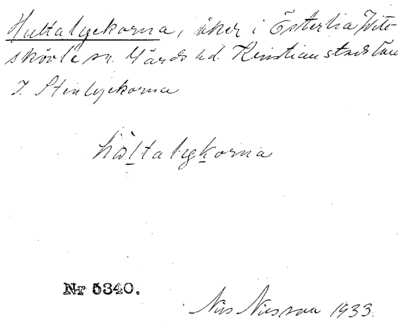 Hultalyckorna, åker i Österlia Vitt-
skövle sn. Gärds hd. Kristianstads län
I. Stenlyckorna
hòltalykorna
Nr 5340.
Nils Nilsson 1933.